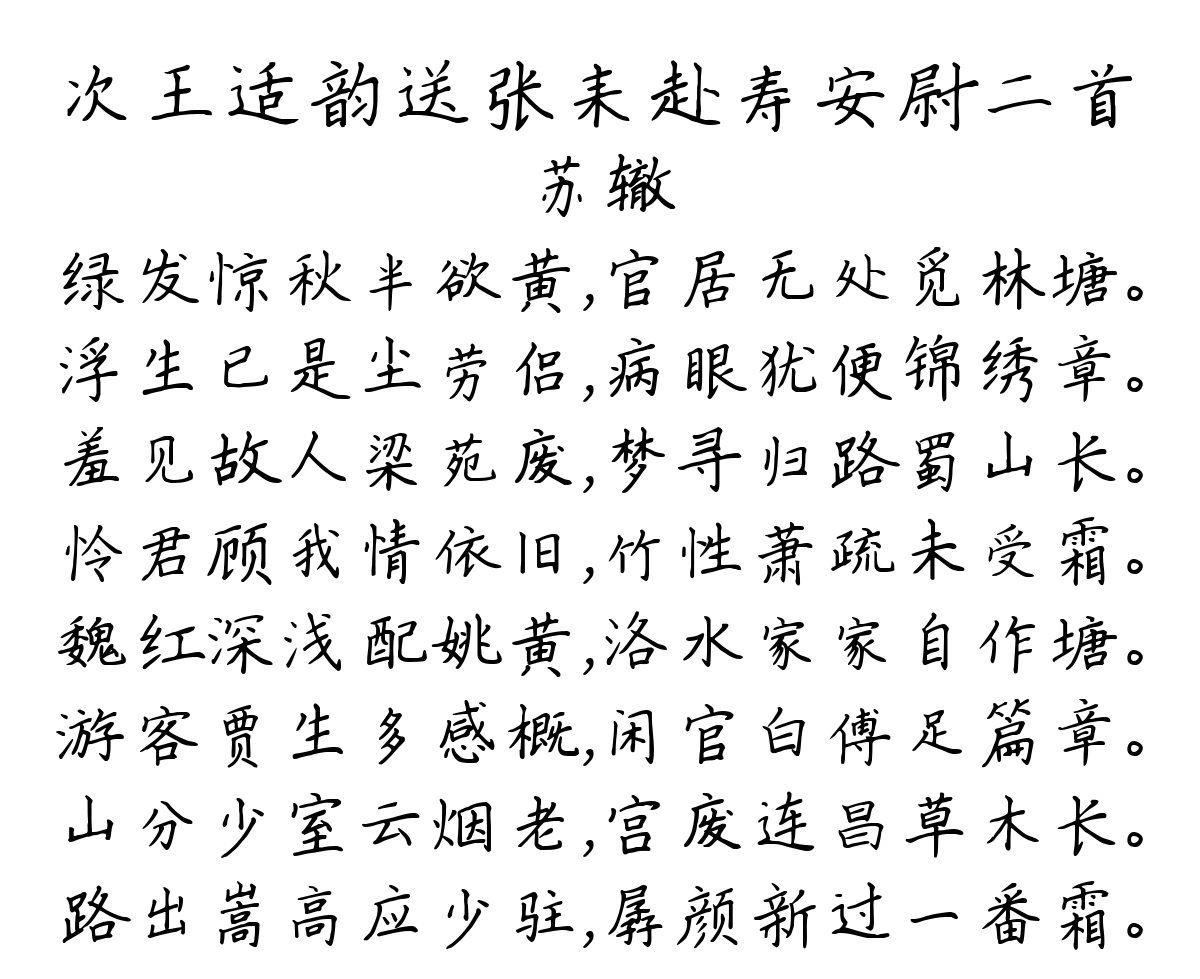 次王适韵送张耒赴寿安尉二首
苏辙
绿发惊秋半欲黄,官居无处觅林塘。
浮生已是尘劳侣,病眼犹便锦绣章。
羞见故人梁苑废,梦寻归路蜀山长。
怜君顾我情依旧,竹性萧疏未受霜。
魏红深浅配姚黄,洛水家家自作塘。
游客贾生多感概,闲官白傅足篇章。
山分少室云烟老,宫废连昌草木长。
路出嵩高应少驻,孱颜新过一番霜。